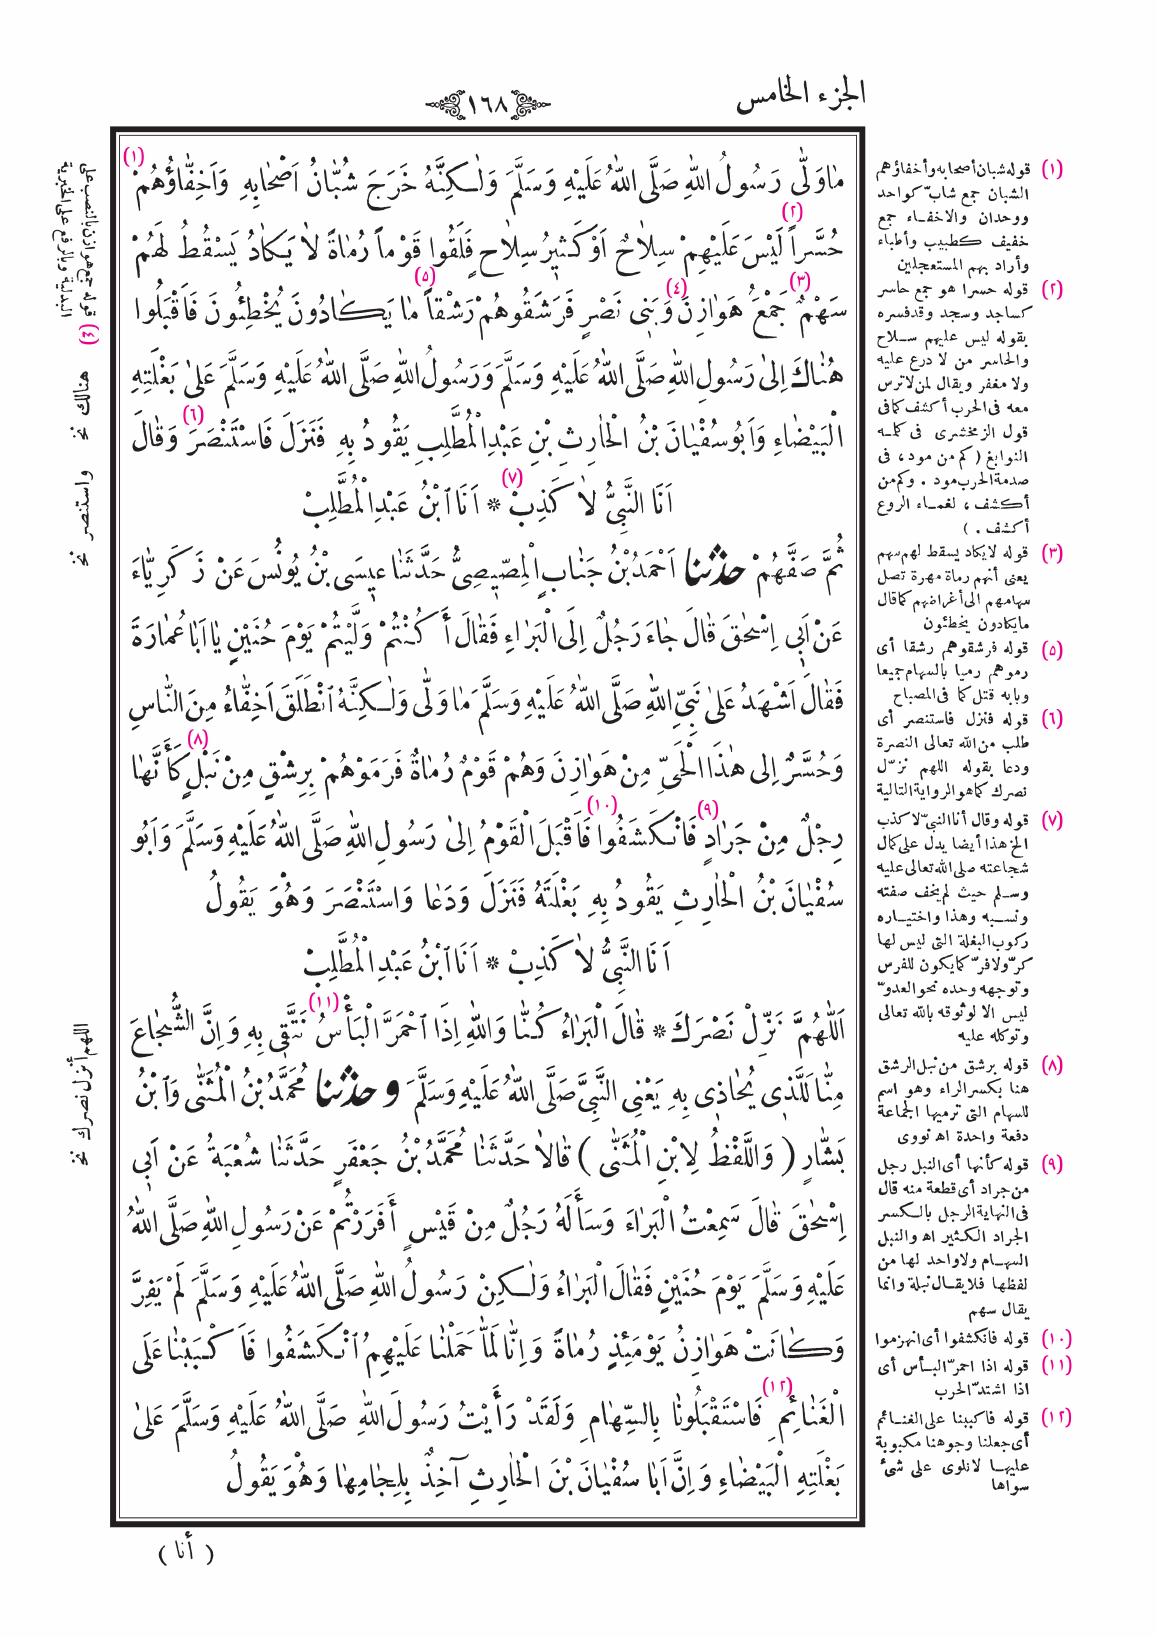 الجزء الخامس
١٦٨
مَا وَلّٰى رَسُولُ اللهِ صَلَّى اللهُ عَلَيْهِ وَسَلَّمَ وَلٰكِنَّهُ خَرَجَ شُبَّانُ اَصْحَابِهِ وَاَخِفَّاؤُهُمْ (١)
حُسَّراً (٢) لَيْسَ عَلَيْهِمْ سِلَاحٌ اَوْ كَثِيرُ سِلَاحٍ فَلَقُوا قَوْماً رُمَاةً لَا يَكَادُ يَسْقُطُ لَهُمْ
سَهْمٌ (٣) جَمْعَُ هَوَازِنَ (٤) وَبَنِى نَصْرٍ فَرَشَقُوهُمْ رَشْقاً (٥) مَا يَكَادُونَ يُخْطِئُونَ فَاَقْبَلُوا
هُنَاكَ اِلٰى رَسُولِ اللهِ صَلَّى اللهُ عَلَيْهِ وَسَلَّمَ وَرَسُولُ اللهِ صَلَّى اللهُ عَلَيْهِ وَسَلَّمَ عَلٰى بَغْلَتِهِ
الْبَيْضَاءِ وَاَبُو سُفْيَانَ بْنُ الْحَارِثِ بْنِ عَبْدِ الْمُطَّلِبِ يَقُودُ بِهِ فَنَزَلَ فَاسْتَنْصَرَ (٦) وَقَالَ
اَنَا النَّبِىُّ لَا كَذِبْ (٧) * اَنَا ابْنُ عَبْدِ الْمُطَّلِبْ
ثُمَّ صَفَّهُمْ حدثنا اَحْمَدُ بْنُ جَنَابٍ الْمِصِّيصِىُّ حَدَّثَنَا عِيسَى بْنُ يُونُسَ عَنْ زَكَرِيَّاءَ
عَنْ اَبِى اِسْحٰقَ قَالَ جَاءَ رَجُلٌ اِلَى الْبَرَاءِ فَقَالَ أَكُنْتُمْ وَلَّيْتُمْ يَوْمَ حُنَيْنٍ يَا اَبَا عُمَارَةَ
فَقَالَ اَشْهَدُ عَلٰى نَبِىِّ اللهِ صَلَّى اللهُ عَلَيْهِ وَسَلَّمَ مَا وَلّٰى وَلٰكِنَّهُ انْطَلَقَ اَخِفَّاءُ مِنَ النَّاسِ
وَحُسَّرٌ اِلٰى هٰذَا الْحَىِّ مِنْ هَوَازِنَ وَهُمْ قَوْمٌ رُمَاةٌ فَرَمَوْهُمْ بِرِشْقٍ مِنْ نَبْلٍ (٨) كَأَنَّهَا
رِجْلٌ مِنْ جَرَادٍ (٩) فَانْكَشَفُوا (١٠) فَاَقْبَلَ الْقَوْمُ اِلٰى رَسُولِ اللهِ صَلَّى اللهُ عَلَيْهِ وَسَلَّمَ وَاَبُو
سُفْيَانَ بْنُ الْحَارِثِ يَقُودُ بِهِ بَغْلَتَهُ فَنَزَلَ وَدَعَا وَاسْتَنْصَرَ وَهُوَ يَقُولُ
اَنَا النَّبِىُّ لَا كَذِبْ * اَنَا ابْنُ عَبْدِ الْمُطَّلِبْ
اَللّٰهُمَّ نَزِّلْ نَصْرَكَ * قَالَ الْبَرَاءُ كُنَّا وَاللهِ اِذَا احْمَرَّ الْبَأْسُ (١١) نَتَّقِى بِهِ وَاِنَّ الشُّجَاعَ
مِنَّا لَلَّذِى يُحَاذِى بِهِ يَعْنِى النَّبِىَّ صَلَّى اللهُ عَلَيْهِ وَسَلَّمَ و حدثنا مُحَمَّدُ بْنُ الْمُثَنّٰى وَابْنُ
بَشَّارٍ ( وَاللَّفْظُ لِابْنِ الْمُثَنّٰى ) قَالَا حَدَّثَنَا مُحَمَّدُ بْنُ جَعْفَرٍ حَدَّثَنَا شُعْبَةُ عَنْ اَبِى
اِسْحٰقَ قَالَ سَمِعْتُ الْبَرَاءَ وَسَأَلَهُ رَجُلٌ مِنْ قَيْسٍ أَفَرَرْتُمْ عَنْ رَسُولِ اللهِ صَلَّى اللهُ
عَلَيْهِ وَسَلَّمَ يَوْمَ حُنَيْنٍ فَقَالَ الْبَرَاءُ وَلٰكِنْ رَسُولُ اللهِ صَلَّى اللهُ عَلَيْهِ وَسَلَّمَ لَمْ يَفِرَّ
وَكَانَتْ هَوَازِنُ يَوْمَئِذٍ رُمَاةً وَاِنَّا لَمَّا حَمَلْنَا عَلَيْهِمُ انْكَشَفُوا فَاَكْبَبْنَا عَلَى
الْغَنَائِمِ (١٢) فَاسْتَقْبَلُونَا بِالسِّهَامِ وَلَقَدْ رَأَيْتُ رَسُولَ اللهِ صَلَّى اللهُ عَلَيْهِ وَسَلَّمَ عَلٰى
بَغْلَتِهِ الْبَيْضَاءِ وَاِنَّ اَبَا سُفْيَانَ بْنَ الْحَارِثِ آخِذٌ بِلِجَامِهَا وَهُوَ يَقُولُ
( أنا )
(١) قوله شبان أصحابه وأخفاؤهم
الشبان جمع شابّ كواحد
ووحدان والاخفاء جمع
خفيف كطبيب وأطباء
وأراد بهم المستعجلين
(٢) قوله حسرا هو جمع حاسر
كساجد وسجد وقدفسره
بقوله ليس عليهم سلاح
والحاسر من لا درع عليه
ولا مغفر ويقال لمن لا ترس
معه فى الحرب أكشف كما فى
قول الزمخشرى فى كلمه
النوابغ (كم من مود، فى
صدمة الحرب مود . وكم من
أكشف، لغماء الروع
أكشف . )
(٣) قوله لا يكاد يسقط لهم سهم
يعنى أنهم رماة مهرة تصل
سهامهم الى أغراضهم كما قال
ما يكادون يخطئون
(٥) قوله فرشقوهم رشقا أى
رموهم رميا بالسهام جميعا
وبابه قتل كما فى المصباح
(٦) قوله فنزل فاستنصر أى
طلب من الله تعالى النصرة
ودعا بقوله اللهم نزّل
نصرك كما هو الرواية التالية
(٧) قوله وقال أنا النبىّ لا كذب
الخ هذا أيضا يدل على كمال
شجاعته صلى الله تعالى عليه
وسلم حيث لم يخف صفته
ونسبه وهذا واختياره
ركوب البغلة التى ليس لها
كرّ ولا فرّ كما يكون للفرس
وتوجهه وحده نحو العدوّ
ليس الا لوثوقه بالله تعالى
وتوكله عليه
(٨) قوله برشق من نبل الرشق
هنا بكسر الراء وهو اسم
للسهام التى ترميها الجماعة
دفعة واحدة اه نووى
(٩) قوله كأنها أى النبل رجل
من جراد أى قطعة منه قال
فى النهاية الرجل بالكسر
الجراد الكثير اه والنبل
السهام ولا واحد لها من
لفظها فلا يقال نبلة وانما
يقال سهم
(١٠) قوله فانكشفوا أى انهزموا
(١١) قوله اذا احمرّ البأس أى
اذا اشتدّ الحرب
(١٢) قوله فاكببنا على الغنائم
أى جعلنا وجوهنا مكبوبة
عليها لا نلوى على شىء
سواها
(٤) قوله جمع هوازن بالنصب على
البدلية وبالرفع على الخبرية
هنالك نخ
واستنصر نخ
اللهم أنزل نصرك نخ